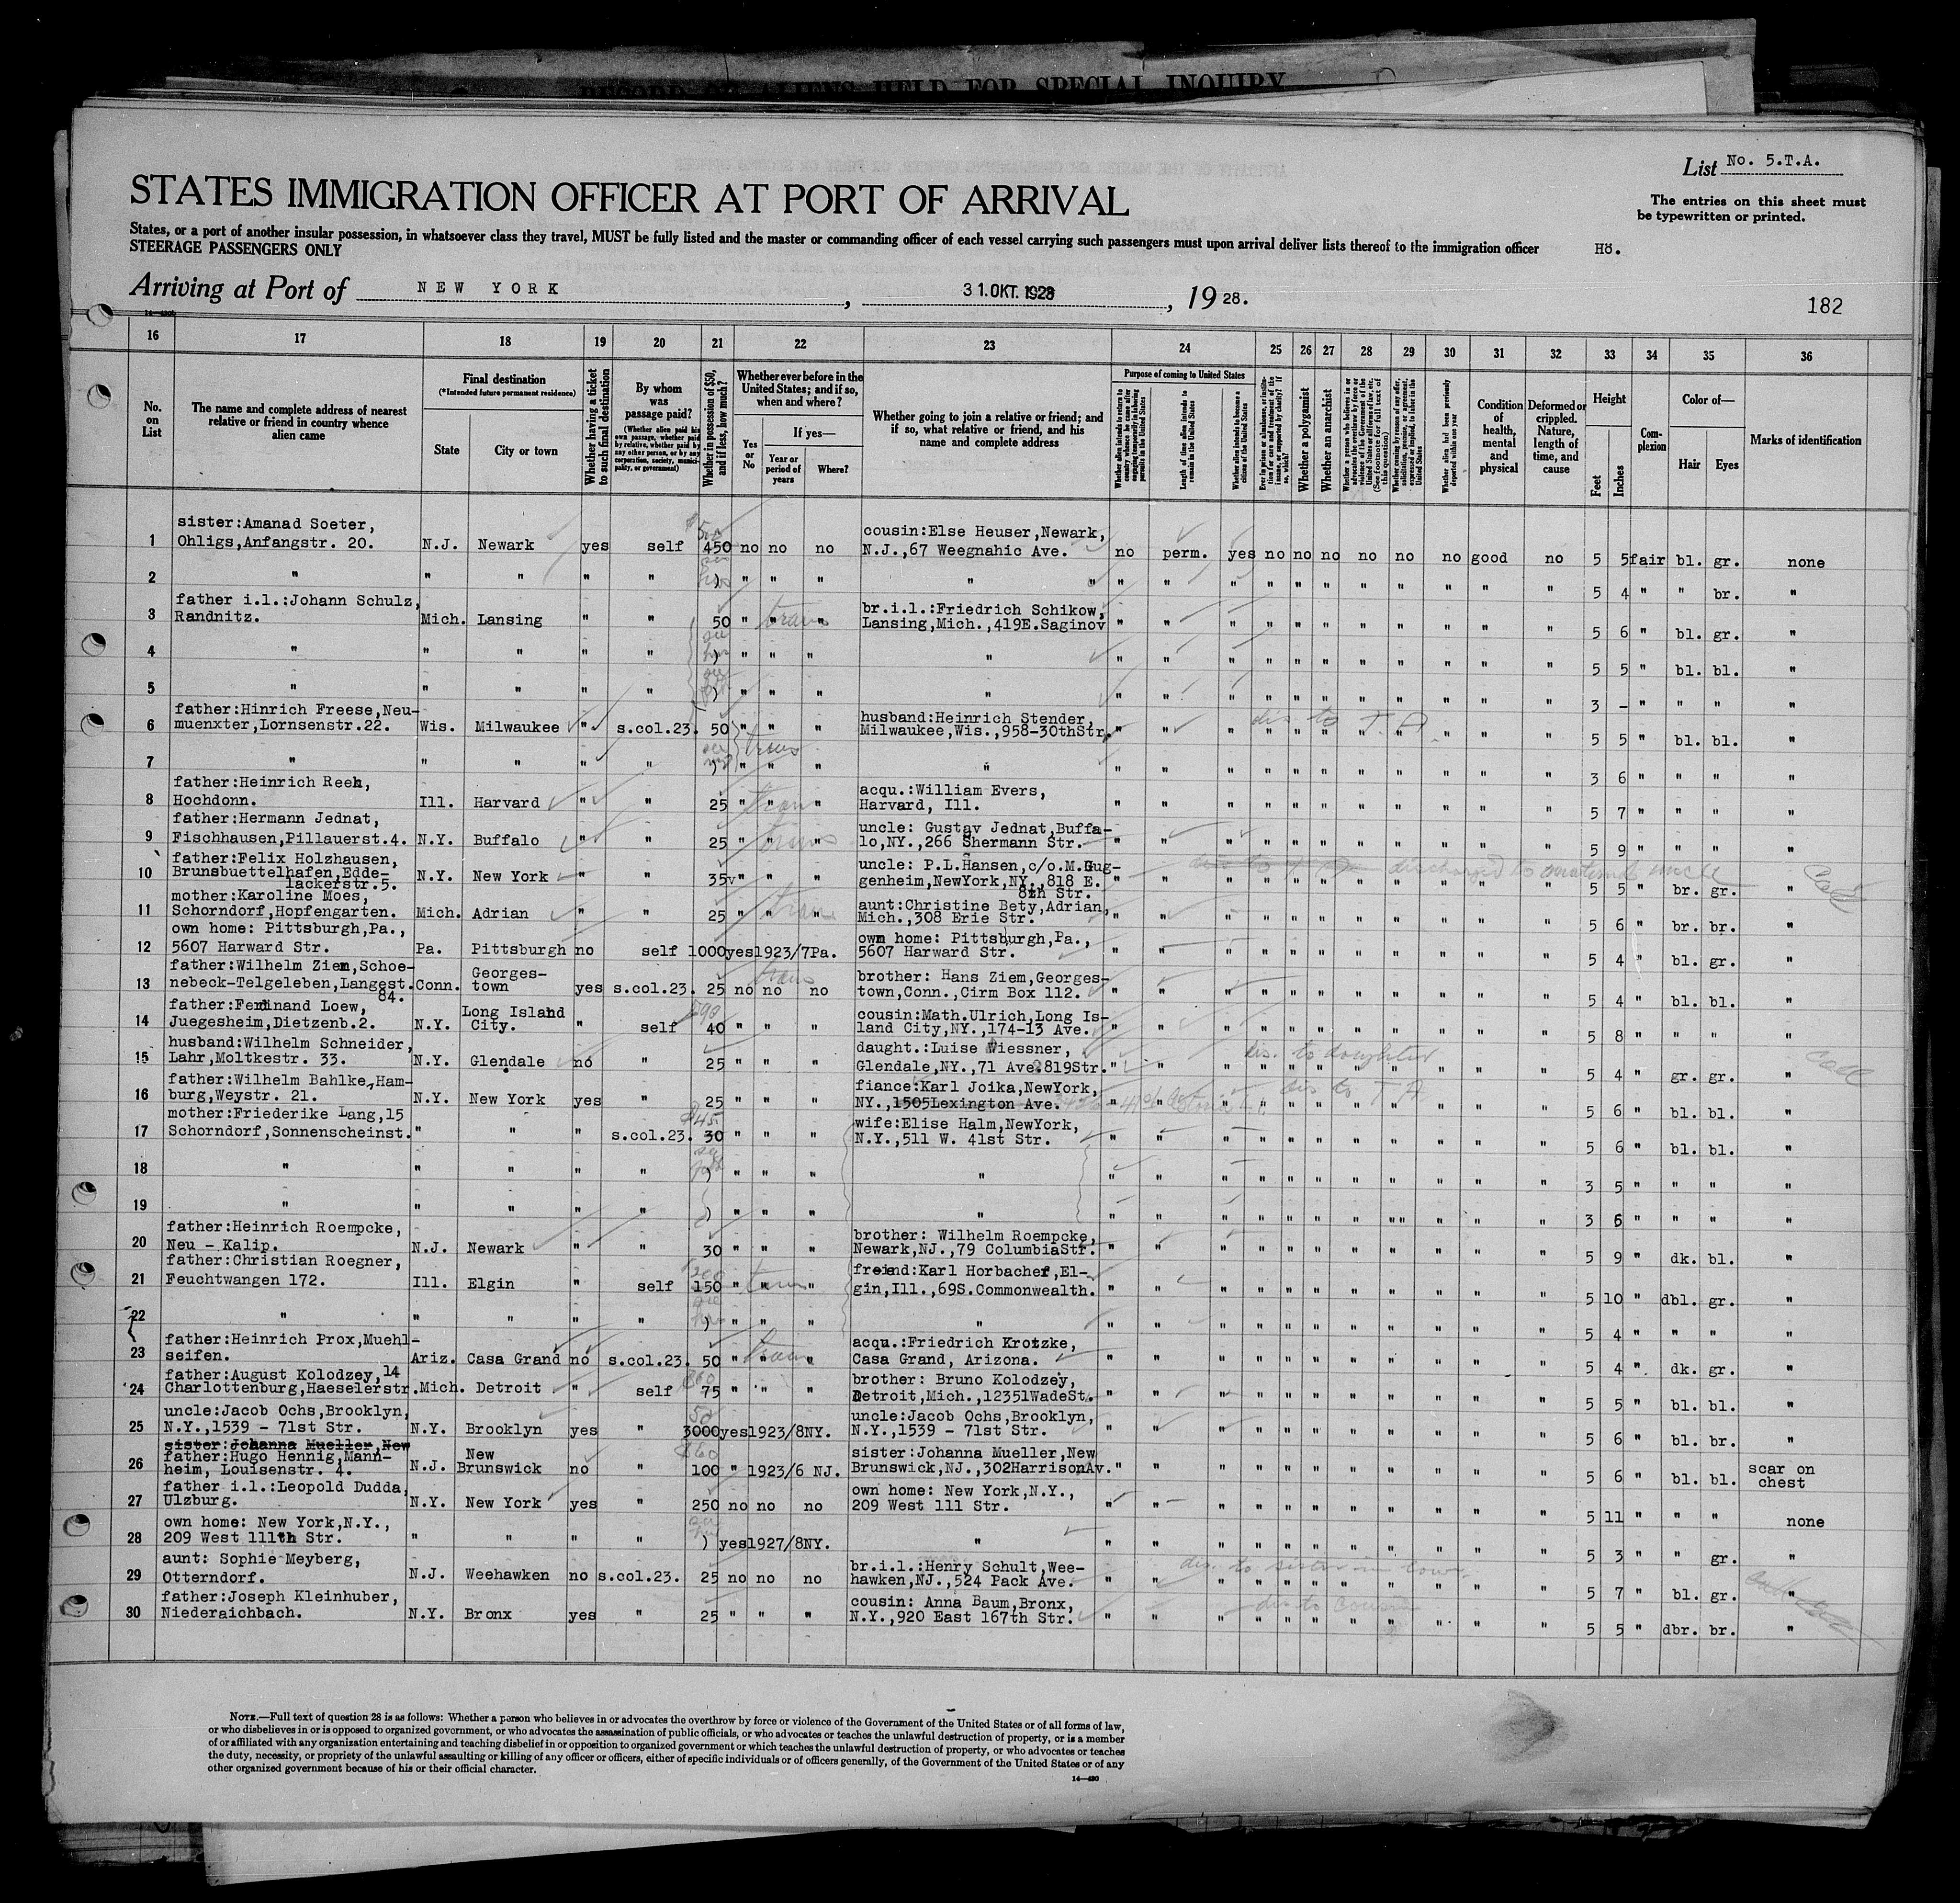 RECORD OF ALIENS HELD FOR SPECIAL INQUIRY
List No. 5.T.A.
STATES IMMIGRATION OFFICER AT PORT OF ARRIVAL
The entries on this sheet must
be typewritten or printed.
States, or a port of another insular possession, in whatsoever class they travel, MUST be fully listed and the master or commanding officer of each vessel carrying such passengers must upon arrival deliver lists thereof to the immigration officer
STEERAGE PASSENGERS ONLY
Hö.
Arriving at Port of NEW YORK, 31.OKT.1928, 1928.
182
16 17 18 19 20 21 22 23 24 25 26 27 28 29 30 31 32 33 34 35 36
No. on List
The name and complete address of nearest relative or friend in country whence alien came
Final destination
(*Intended future permanent residence)
State
City or town
Whether having a ticket to such final destination
By whom was passage paid?
(Whether alien paid his own passage, whether paid by relative, whether paid by any other person, or by any corporation, society, municipality, or government)
Whether in possession of $50, and if less, how much?
Whether ever before in the United States; and if so, when and where?
Yes or No
If yes—
Year or period of years
Where?
Whether going to join a relative or friend; and if so, what relative or friend, and his name and complete address
Purpose of coming to United States
Length of time alien intends to remain in the United States
Whether alien intends to become a citizen of the United States
Whether a polygamist
Whether an anarchist
Whether alien had been previously deported within one year
Condition of health, mental and physical
Deformed or crippled. Nature, length of time, and cause
Height
Feet
Inches
Complexion
Color of—
Hair
Eyes
Marks of identification
1 sister:Amanad Soeter,
Ohligs,Anfangstr. 20. N.J. Newark yes self 450 no no no cousin:Else Heuser,Newark,
N.J.,67 Weegnahic Ave. no perm. yes no no no no no no good no 5 5 fair bl. gr. none
2 " " " " " ) " " " " " " " " " " " " " " " 5 4 " " br. "
3 father i.l.:Johann Schulz,
Randnitz. Mich. Lansing " " 50 " " " br.i.l.:Friedrich Schikow,
Lansing,Mich.,419E.Saginov " " " " " " " " " " " 5 6 " bl. gr. "
4 " " " " " ) " " " " " " " " " " " " " " " 5 5 " bl. bl. "
5 " " " " " ) " " " " " " " " " " " " " " " 3 - " " " "
6 father:Hinrich Freese,Neu-
muenxter,Lornsenstr.22. Wis. Milwaukee " s.col.23. 50 " " " husband:Heinrich Stender,
Milwaukee,Wis.,958-30thStr. " " " " " " " " " " " 5 5 " bl. bl. "
dis. to T.A.
7 " " " " " ) " " " " " " " " " " " " " " " 3 6 " " " "
8 father:Heinrich Reeh,
Hochdonn. Ill. Harvard " " 25 " " " acqu.:William Evers,
Harvard, Ill. " " " " " " " " " " " 5 7 " " " "
9 father:Hermann Jednat,
Fischhausen,Pillauerst.4. N.Y. Buffalo " " 25 " " " uncle: Gustav Jednat,Buffa-
lo,NY.,266 Shermann Str. " " " " " " " " " " " 5 9 " " " "
10 father:Felix Holzhausen,
Brunsbuettelhafen,Edde-
lackerstr.5. N.Y. New York " " 35 " " " uncle: P.L.Hansen,c/o.M.Gug-
genheim,NewYork,NY.,818 E.
8th Str. " " " " " " " " " " " 5 5 " br. gr. "
discharged to maternal uncle
11 mother:Karoline Moes,
Schorndorf,Hopfengarten. Mich. Adrian " " 25 " " " aunt:Christine Bety,Adrian,
Mich.,308 Erie Str. " " " " " " " " " " " 5 6 " br. br. "
12 own home: Pittsburgh,Pa.,
5607 Harward Str. Pa. Pittsburgh no self 1000 yes 1923/7 Pa. own home: Pittsburgh,Pa.,
5607 Harward Str. " " " " " " " " " " " 5 4 " bl. gr. "
13 father:Wilhelm Ziem,Schoe-
nebeck-Telgeleben,Langest.
84. Conn. Georges-
town yes s.col.23. 25 no no no brother: Hans Ziem,Georges-
town,Conn.,Cirm Box 112. " " " " " " " " " " " 5 4 " bl. bl. "
14 father:Ferdinand Loew,
Juegesheim,Dietzenb.2. N.Y. Long Island
City. " self 40 " " " cousin:Math.Ulrich,Long Is-
land City,NY.,174-13 Ave. " " " " " " " " " " " 5 8 " " " "
15 husband:Wilhelm Schneider,
Lahr,Moltkestr. 33. N.Y. Glendale no " 25 " " " daught.:Luise Wiessner,
Glendale,NY.,71 Ave.819Str. " " " " " " " " " " " 5 4 " gr. gr. "
dis. to daughter
16 father:Wilhelm Bahlke,Ham-
burg,Weystr. 21. N.Y. New York yes " 25 " " " fiance:Karl Joika,NewYork,
NY.,1505Lexington Ave. " " " " " " " " " " " 5 6 " bl. bl. "
dis to T A
17 mother:Friederike Lang,15
Schorndorf,Sonnenscheinst. " " " s.col.23. 30 " " " wife:Elise Halm,NewYork,
N.Y.,511 W. 41st Str. " " " " " " " " " " " 5 6 " bl. bl. "
18 " " " " " ) " " " " " " " " " " " " " " " 3 5 " " " "
19 " " " " " ) " " " " " " " " " " " " " " " 3 6 " " " "
20 father:Heinrich Roempcke,
Neu - Kalip. N.J. Newark " " 30 " " " brother: Wilhelm Roempcke,
Newark,NJ.,79 ColumbiaStr. " " " " " " " " " " " 5 9 " dk. bl. "
21 father:Christian Roegner,
Feuchtwangen 172. Ill. Elgin " self 150 " " " freind:Karl Horbacher,El-
gin,Ill.,69S.Commonwealth. " " " " " " " " " " " 5 10 " dbl. gr. "
22 " " " " " ) " " " " " " " " " " " " " " " 5 4 " " " "
23 father:Heinrich Prox,Muehl-
seifen. Ariz. Casa Grand no s.col.23. 50 " " " acqu.:Friedrich Krotzke,
Casa Grand, Arizona. " " " " " " " " " " " 5 4 " dk. gr. "
24 father:August Kolodzey,14
Charlottenburg,Haeselerstr. Mich. Detroit " self 75 " " " brother: Bruno Kolodzey,
Detroit,Mich.,12351WadeSt. " " " " " " " " " " " 5 5 " bl. bl. "
25 uncle:Jacob Ochs,Brooklyn,
N.Y.,1539 - 71st Str. N.Y. Brooklyn yes " 3000 yes 1923/8 NY. uncle:Jacob Ochs,Brooklyn,
N.Y.,1539 - 71st Str. " " " " " " " " " " " 5 6 " bl. br. "
26 sister:Johanna Mueller,New
father:Hugo Hennig,Mann-
heim, Louisenstr. 4. N.J. New
Brunswick no " 100 " 1923/6 NJ. sister:Johanna Mueller,New
Brunswick,NJ.,302HarrisonAv. " " " " " " " " " " " 5 6 " bl. bl. scar on
chest
27 father i.l.:Leopold Dudda,
Ulzburg. N.Y. New York yes " 250 no no no own home: New York,N.Y.,
209 West 111 Str. " " " " " " " " " " " 5 11 " " " none
28 own home: New York,N.Y.,
209 West 111th Str. " " " " ) yes 1927/8 NY. " " " " " " " " " " " " 5 3 " " gr. "
29 aunt: Sophie Meyberg,
Otterndorf. N.J. Weehawken no s.col.23. 25 no no no br.i.l.:Henry Schult,Wee-
hawken,NJ.,524 Pack Ave. " " " " " " " " " " " 5 7 " bl. gr. "
dis. to sister in law
30 father:Joseph Kleinhuber,
Niederaichbach. N.Y. Bronx yes " 25 " " " cousin: Anna Baum,Bronx,
N.Y.,920 East 167th Str. " " " " " " " " " " " 5 5 " dbr. br. "
dis to cousin
NOTE.—Full text of question 28 is as follows: Whether a person who believes in or advocates the overthrow by force or violence of the Government of the United States or of all forms of law,
or who disbelieves in or is opposed to organized government, or who advocates the assassination of public officials, or who advocates or teaches the unlawful destruction of property, or is a member
of or affiliated with any organization entertaining and teaching disbelief in or opposition to organized government or which teaches the unlawful destruction of property, or who advocates or teaches
the duty, necessity, or propriety of the unlawful assaulting or killing of any officer or officers, either of specific individuals or of officers generally, of the Government of the United States or of any
other organized government because of his or their official character.
14—430